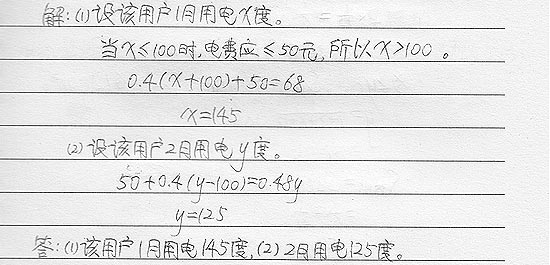 解:(1)设该用户1月用电x度。
当x≤100时,电费应≤50元,所以x>100。
0.4(x+100)+50=68
x=145
(2)设该用户2月用电y度。
50+0.4(y-100)=0.48y
y=125
答:(1)该用户1月用电145度,(2)2月用电125度。